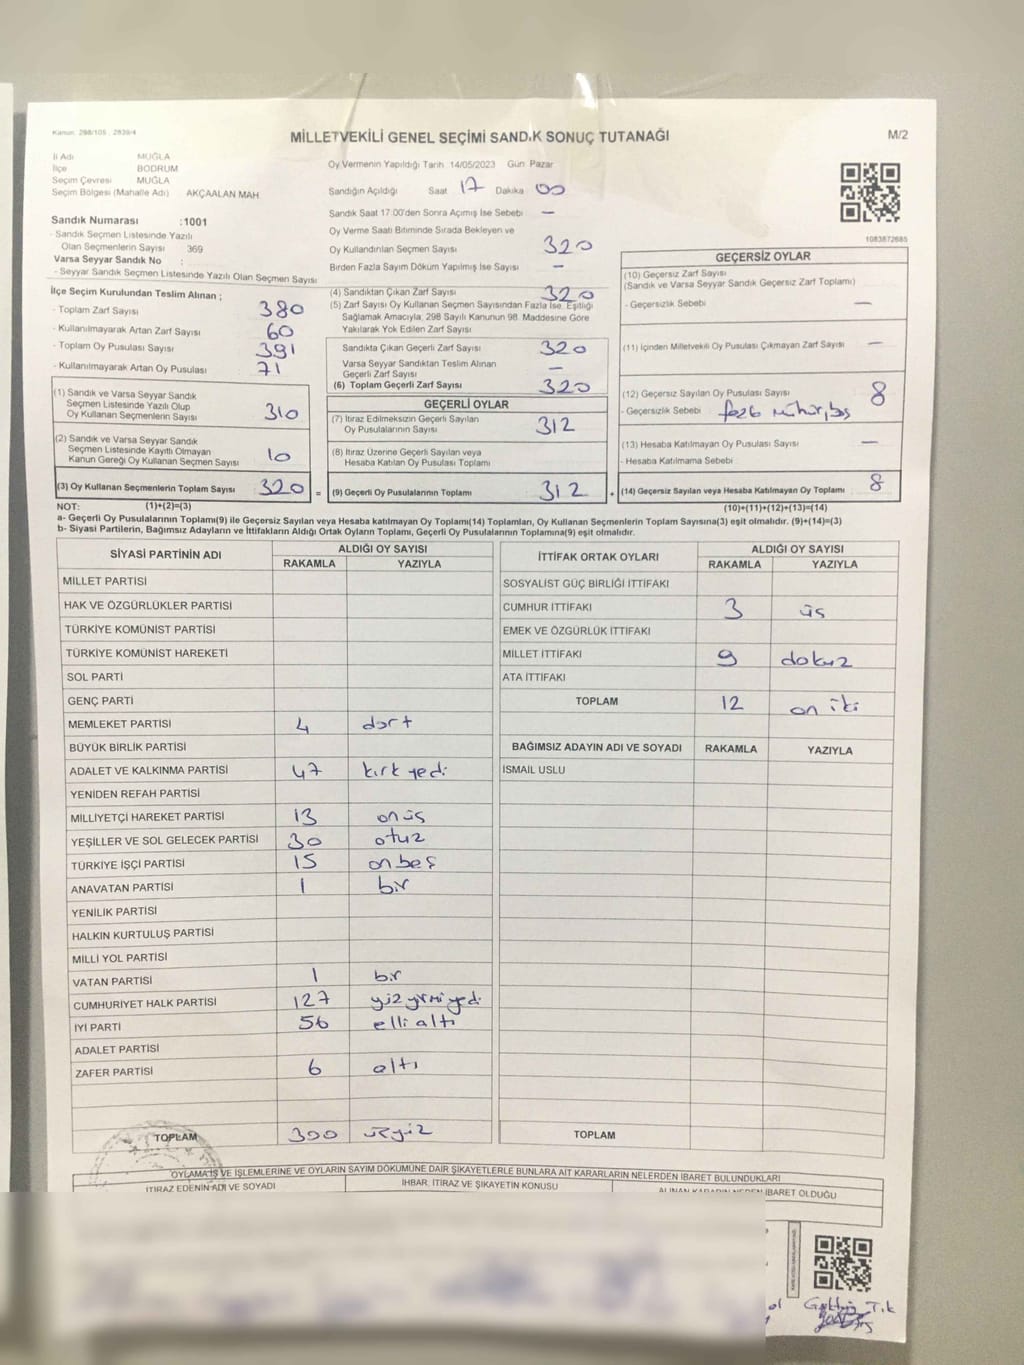 Kanun: 298/105, 2839/4
MİLLETVEKİLİ GENEL SEÇİMİ SANDIK SONUÇ TUTANAĞI
M/2
İl Adı MUĞLA
İlçe BODRUM
Seçim Çevresi MUĞLA
Seçim Bölgesi (Mahalle Adı) AKÇAALAN MAH
Oy Vermenin Yapıldığı Tarih 14/05/2023 Gün Pazar
Sandığın Açıldığı Saat 17 Dakika 00
Sandık Saat 17:00'den Sonra Açımış İse Sebebi —
Oy Verme Saati Bitiminde Sırada Bekleyen ve
Oy Kullandırılan Seçmen Sayısı 320
Birden Fazla Sayım Döküm Yapılmış İse Sayısı —
1083872685
Sandık Numarası :1001
- Sandık Seçmen Listesinde Yazılı
Olan Seçmenlerin Sayısı 369
Varsa Seyyar Sandık No :
- Seyyar Sandık Seçmen Listesinde Yazılı Olan Seçmen Sayısı
İlçe Seçim Kurulundan Teslim Alınan ;
- Toplam Zarf Sayısı 380
- Kullanılmayarak Artan Zarf Sayısı 60
- Toplam Oy Pusulası Sayısı 391
- Kullanılmayarak Artan Oy Pusulası 71
(1) Sandık ve Varsa Seyyar Sandık
Seçmen Listesinde Yazılı Olup
Oy Kullanan Seçmenlerin Sayısı 310
(2) Sandık ve Varsa Seyyar Sandık
Seçmen Listesinde Kayıtlı Olmayan
Kanun Gereği Oy Kullanan Seçmen Sayısı 10
(3) Oy Kullanan Seçmenlerin Toplam Sayısı 320 =
(4) Sandıktan Çıkan Zarf Sayısı 320
(5) Zarf Sayısı Oy Kullanan Seçmen Sayısından Fazla İse, Eşitliği
Sağlamak Amacıyla, 298 Sayılı Kanunun 98. Maddesine Göre
Yakılarak Yok Edilen Zarf Sayısı
Sandıkta Çıkan Geçerli Zarf Sayısı 320
Varsa Seyyar Sandıktan Teslim Alınan
Geçerli Zarf Sayısı —
(6) Toplam Geçerli Zarf Sayısı 320
GEÇERLİ OYLAR
(7) İtiraz Edilmeksizin Geçerli Sayılan
Oy Pusulalarının Sayısı 312
(8) İtiraz Üzerine Geçerli Sayılan veya
Hesaba Katılan Oy Pusulası Toplamı
(9) Geçerli Oy Pusulalarının Toplamı 312 +
GEÇERSİZ OYLAR
(10) Geçersiz Zarf Sayısı
(Sandık ve Varsa Seyyar Sandık Geçersiz Zarf Toplamı)
- Geçersizlik Sebebi —
(11) İçinden Milletvekili Oy Pusulası Çıkmayan Zarf Sayısı —
(12) Geçersiz Sayılan Oy Pusulası Sayısı 8
- Geçersizlik Sebebi mühür, boş
(13) Hesaba Katılmayan Oy Pusulası Sayısı —
- Hesaba Katılmama Sebebi
(14) Geçersiz Sayılan veya Hesaba Katılmayan Oy Toplamı 8
NOT: (1)+(2)=(3) (10)+(11)+(12)+(13)=(14)
a- Geçerli Oy Pusulalarının Toplamı(9) ile Geçersiz Sayılan veya Hesaba katılmayan Oy Toplamı(14) Toplamları, Oy Kullanan Seçmenlerin Toplam Sayısına(3) eşit olmalıdır. (9)+(14)=(3)
b- Siyasi Partilerin, Bağımsız Adayların ve İttifakların Aldığı Ortak Oyların Toplamı, Geçerli Oy Pusulalarının Toplamına(9) eşit olmalıdır.
SİYASİ PARTİNİN ADI ALDIĞI OY SAYISI
RAKAMLA YAZIYLA
MİLLET PARTİSİ
HAK VE ÖZGÜRLÜKLER PARTİSİ
TÜRKİYE KOMÜNİST PARTİSİ
TÜRKİYE KOMÜNİST HAREKETİ
SOL PARTİ
GENÇ PARTİ
MEMLEKET PARTİSİ 4 dört
BÜYÜK BİRLİK PARTİSİ
ADALET VE KALKINMA PARTİSİ 47 kırk yedi
YENİDEN REFAH PARTİSİ
MİLLİYETÇİ HAREKET PARTİSİ 13 onüç
YEŞİLLER VE SOL GELECEK PARTİSİ 30 otuz
TÜRKİYE İŞÇİ PARTİSİ 15 onbeş
ANAVATAN PARTİSİ 1 bir
YENİLİK PARTİSİ
HALKIN KURTULUŞ PARTİSİ
MİLLİ YOL PARTİSİ
VATAN PARTİSİ 1 bir
CUMHURİYET HALK PARTİSİ 127 yüz yirmi yedi
İYİ PARTİ 56 elli altı
ADALET PARTİSİ
ZAFER PARTİSİ 6 altı
TOPLAM 300 üçyüz
İTTİFAK ORTAK OYLARI ALDIĞI OY SAYISI
RAKAMLA YAZIYLA
SOSYALİST GÜÇ BİRLİĞİ İTTİFAKI
CUMHUR İTTİFAKI 3 üç
EMEK VE ÖZGÜRLÜK İTTİFAKI
MİLLET İTTİFAKI 9 dokuz
ATA İTTİFAKI
TOPLAM 12 on iki
BAĞIMSIZ ADAYIN ADI VE SOYADI RAKAMLA YAZIYLA
İSMAİL USLU
TOPLAM
OYLAMA İŞ VE İŞLEMLERİNE VE OYLARIN SAYIM DÖKÜMÜNE DAİR ŞİKAYETLERLE BUNLARA AİT KARARLARIN NELERDEN İBARET BULUNDUKLARI
İTİRAZ EDENİN ADI VE SOYADI İHBAR, İTİRAZ VE ŞİKAYETİN KONUSU ALINAN KARARIN NEDEN İBARET OLDUĞU